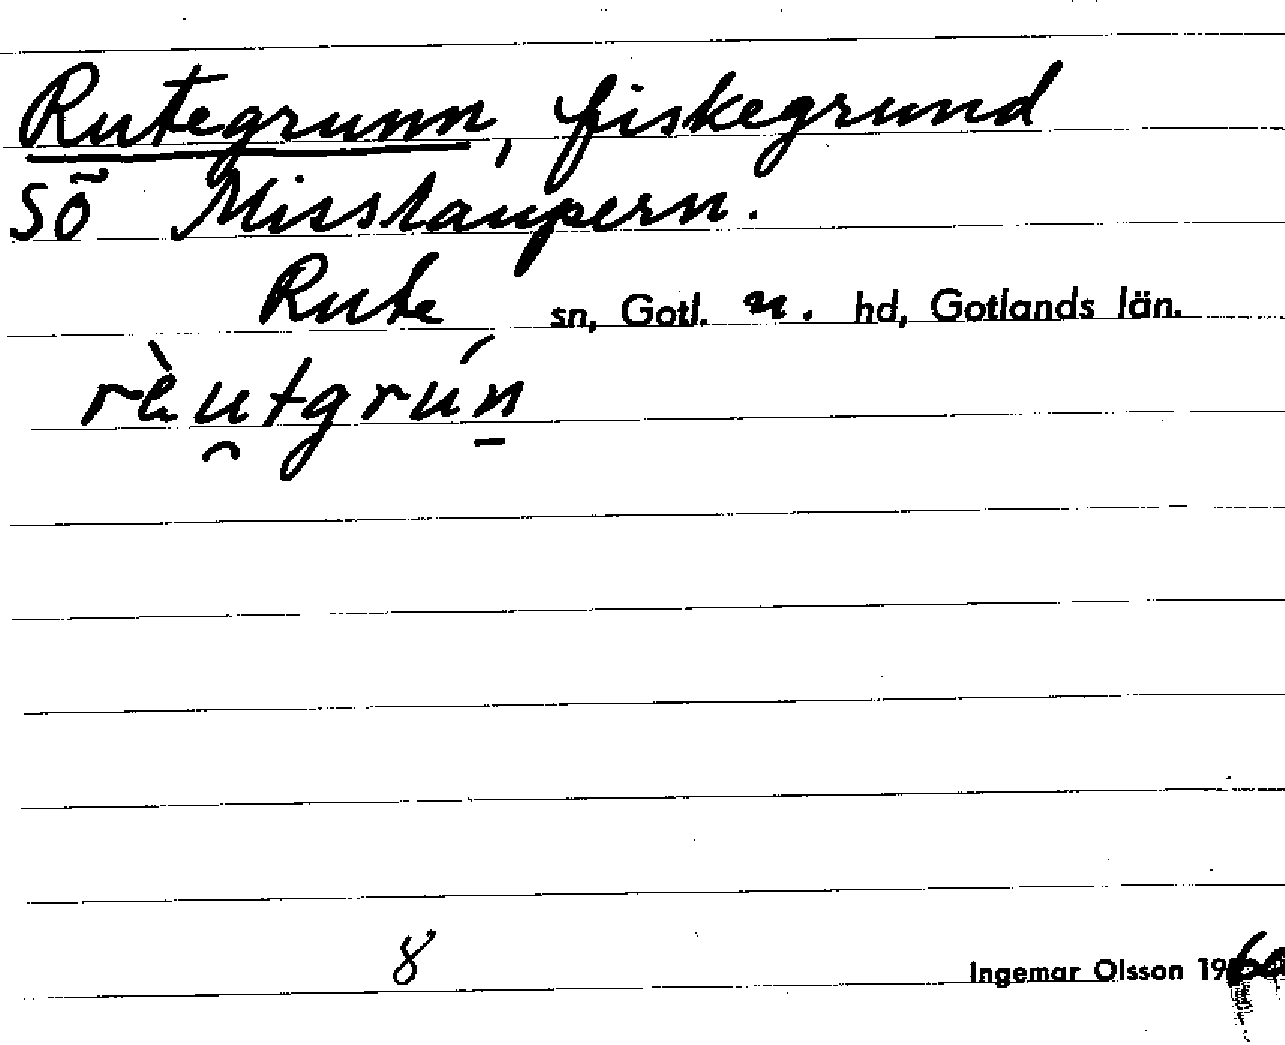 Rutegrunn, fiskegrund
SÖ Misslaupern.
Rute sn, Gotl. n. hd, Gotlands län.
rèu̯tgrún̲
8
Ingemar Olsson 1960